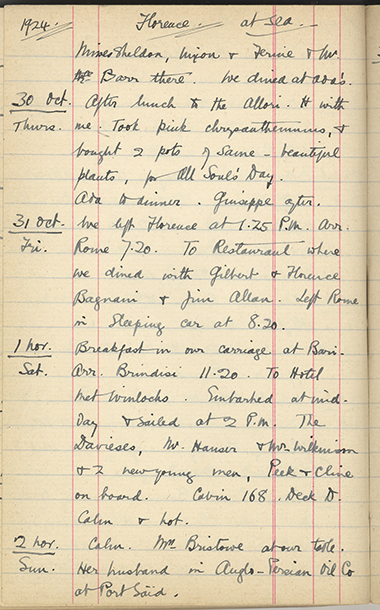 1924. Florence at Sea.
Mines Sheldon, Nixon & Fernie & Mr.
Barr there. We dined at Ada's.
30 Oct. After lunch to the Allori. H with
Thurs. me. Took pink chrysanthemums, &
bought 2 pots of same - beautiful
plants, for All Soul's Day.
Ada to dinner. Giuseppe after.
31 Oct. We left Florence at 1.25 P.M. Arr.
Fri. Rome 7.20. To Restaurant where
we dined with Gilbert & Florence
Bagnani & Jim Allan. Left Rome
in Sleeping car at 8.20.
1 Nov. Breakfast in our carriage at Bari.
Sat. Arr. Brindisi 11.20. To Hotel
Met Winlocks. Embarked at mid-
day & sailed at 2 P.M. The
Davieses, Mr. Hauser & Mr. Wilkinson
& 2 new young men, Peek & Cline
on board. Cabin 168. Deck D.
Calm & hot.
2 Nov. Calm. Mrs Bristowe at our table.
Sun. Her husband in Anglo-Persian Oil Co
at Port Said.